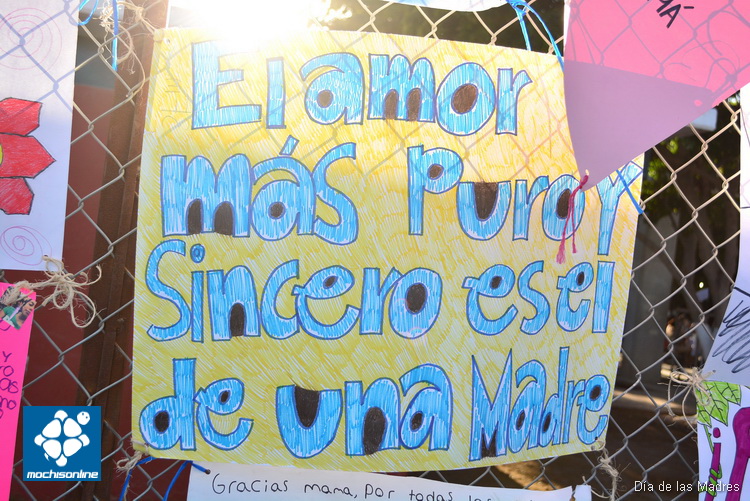 MÁ
El amor
más Puro Y
Sincero es el
de una Madre
Y
Gracias mama, por todas
mochisonline
Día de las Madres